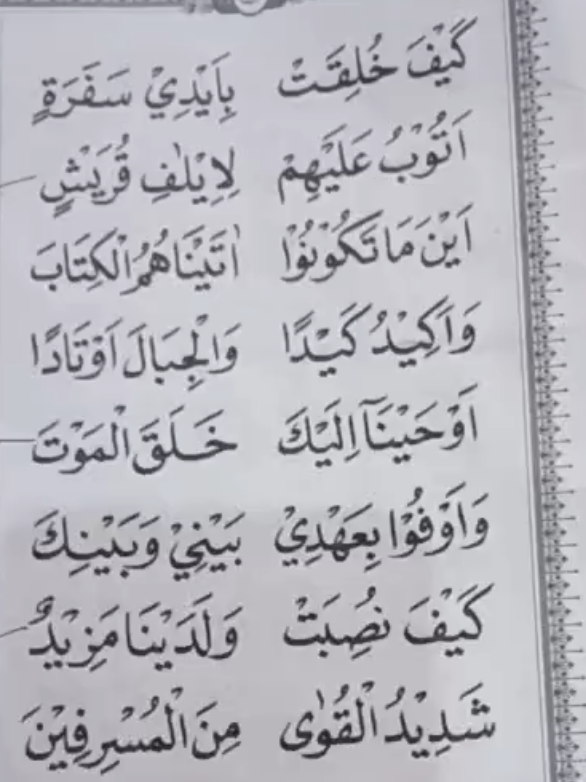 كَيْفَ خُلِقَتْ بِاَيْدِيْ سَفَرَةٍ
اَتُوْبُ عَلَيْهِمْ لِاِيْلٰفِ قُرَيْشٍ
اَيْنَ مَا تَكُوْنُوْا اٰتَيْنَاهُمُ الْكِتَابَ
وَاَكِيْدُ كَيْدًا وَالْجِبَالَ اَوْتَادًا
اَوْحَيْنَآ اِلَيْكَ خَلَقَ الْمَوْتَ
وَاَوْفُوْا بِعَهْدِيْ بَيْنِيْ وَبَيْنِكَ
كَيْفَ نُصِبَتْ وَلَدَيْنَا مَزِيْدٌ
شَدِيْدُ الْقُوٰى مِنَ الْمُسْرِفِيْنَ